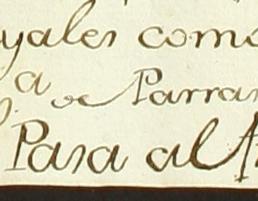 yales como
a de Parran
Para al A